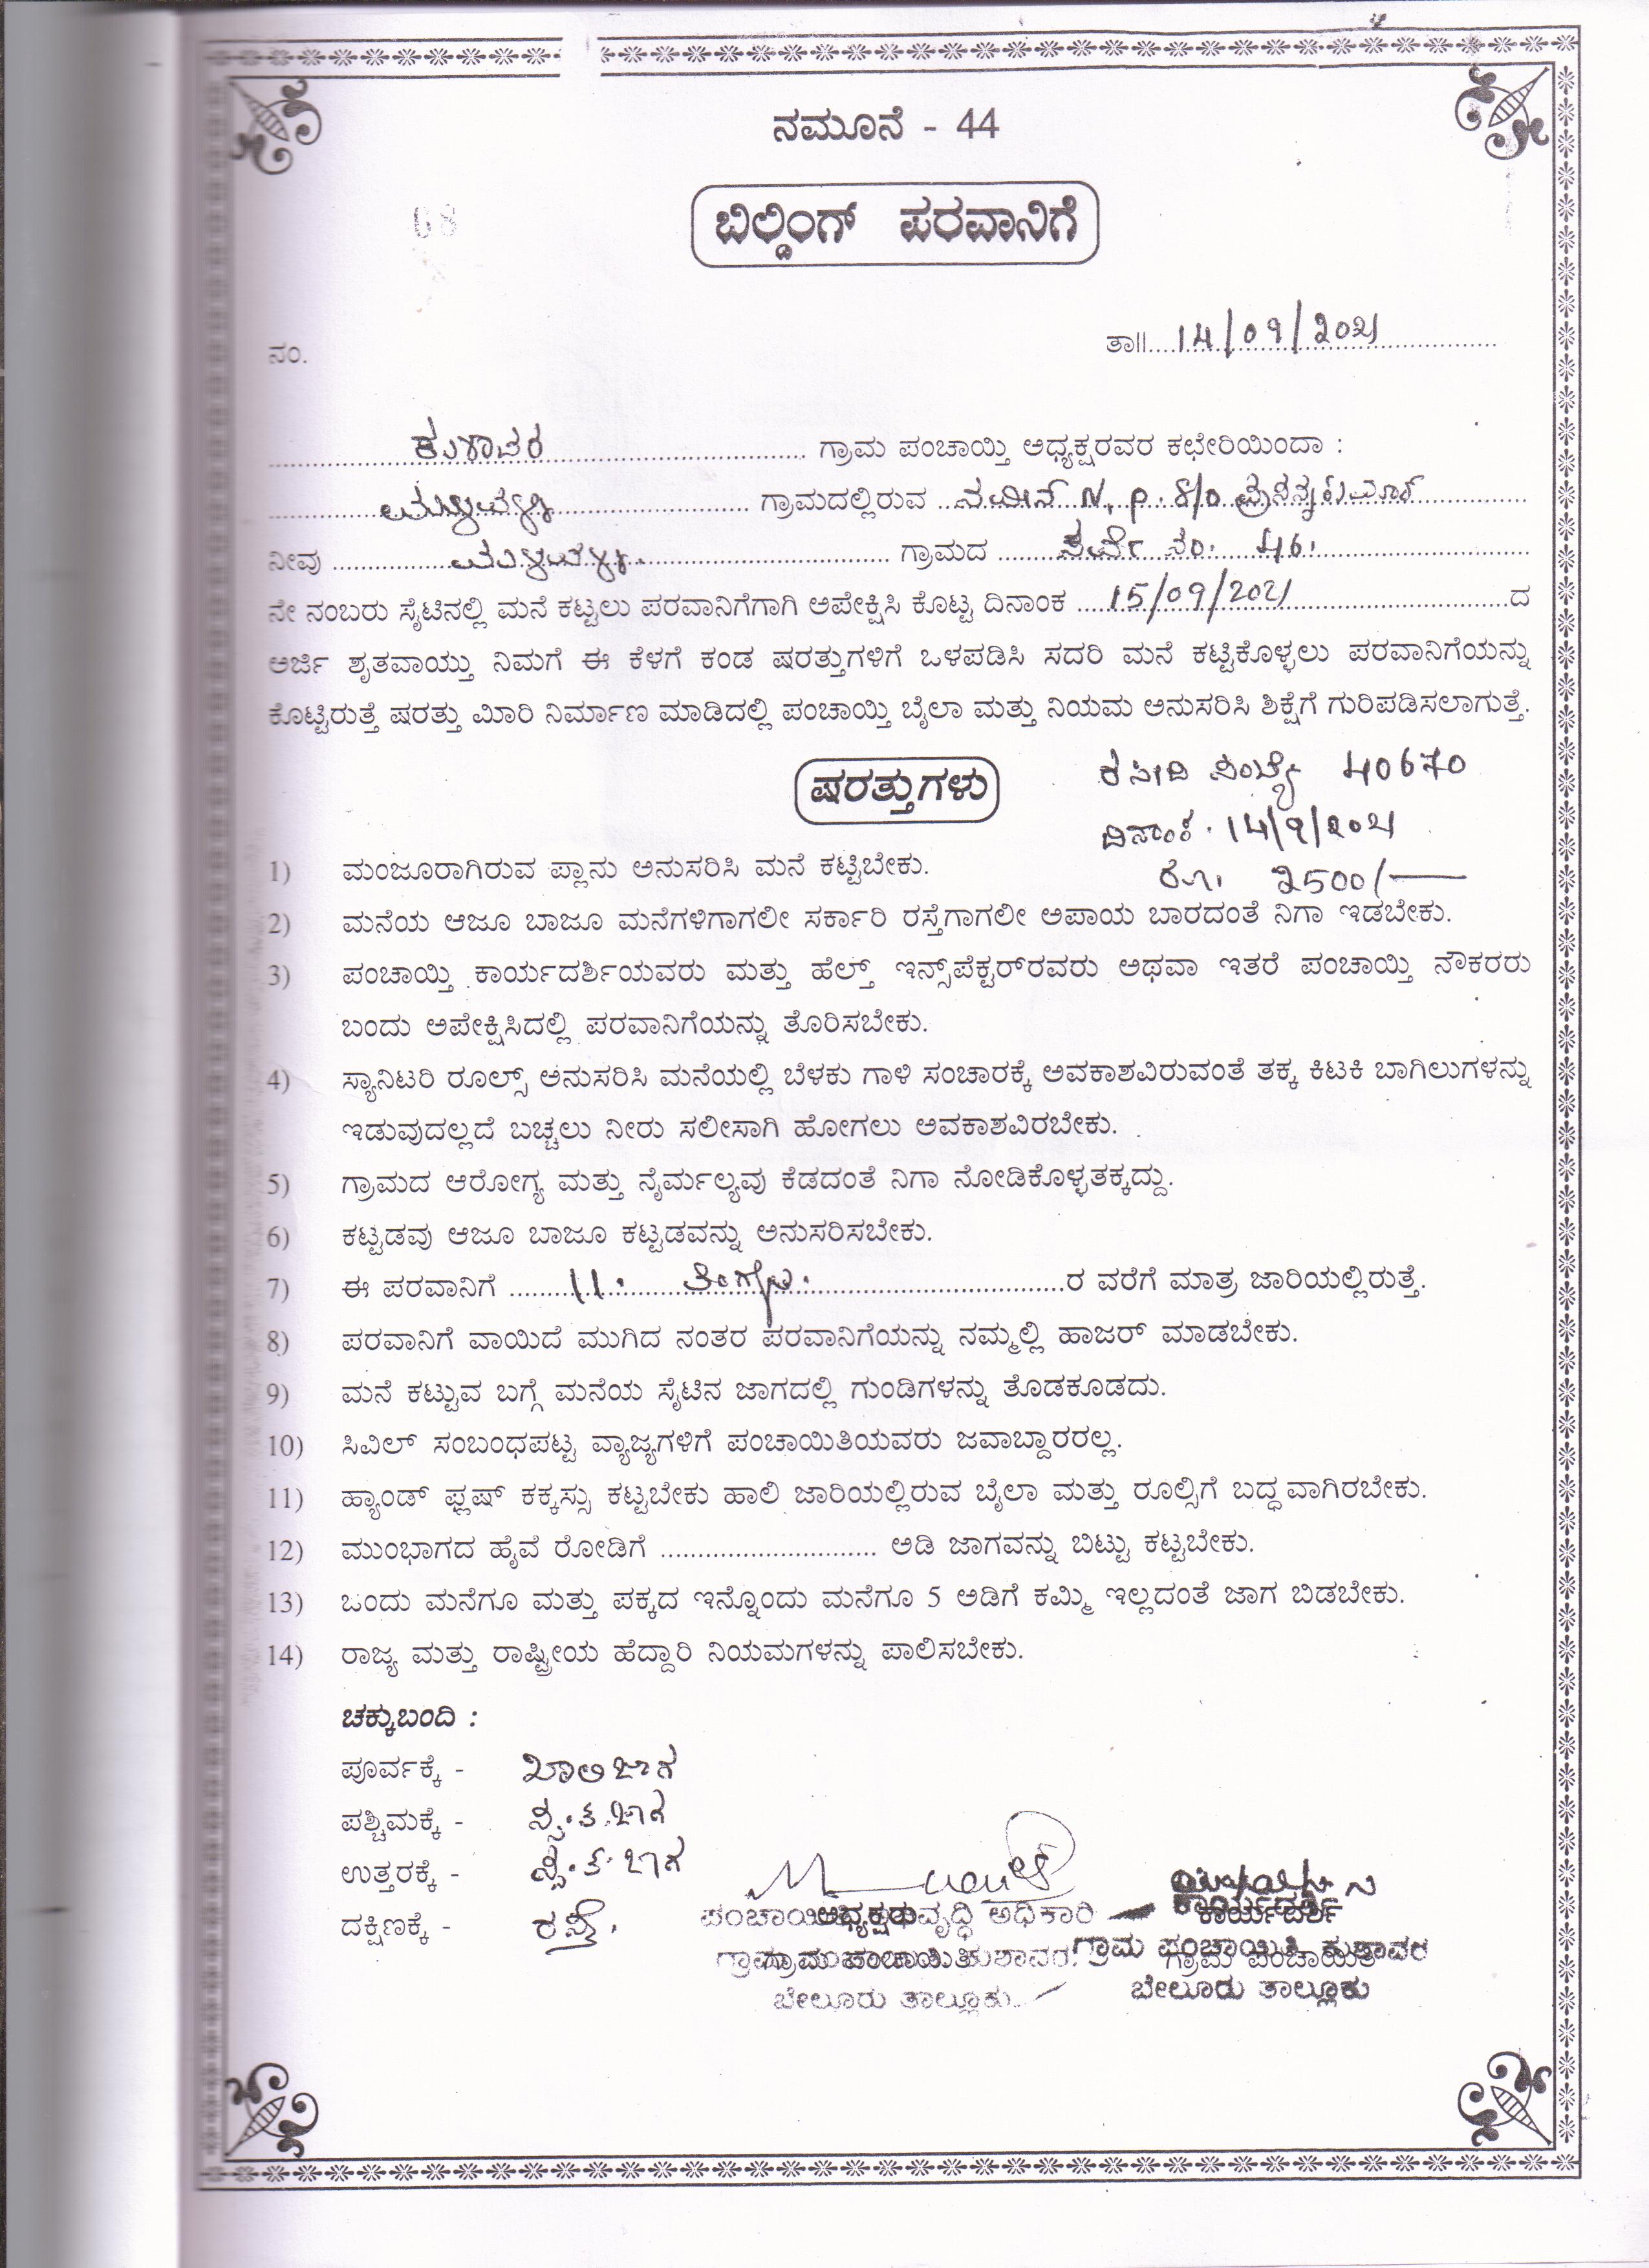 ನಮೂನೆ - 44
68
ಬಿಲ್ಡಿಂಗ್ ಪರವಾನಿಗೆ
ನಂ. ತಾ॥ 14/09/2021
ಕುಶಾವರ ಗ್ರಾಮ ಪಂಚಾಯ್ತಿ ಅಧ್ಯಕ್ಷರವರ ಕಛೇರಿಯಿಂದಾ :
ಗ್ರಾಮದಲ್ಲಿರುವ ನವೀನ್ N. P. S/O ಪ್ರಸನ್ನಕುಮಾರ್
ನೀವು ಗ್ರಾಮದ ಸರ್ವೆ ನಂ. 46.
ನೇ ನಂಬರು ಸೈಟಿನಲ್ಲಿ ಮನೆ ಕಟ್ಟಲು ಪರವಾನಿಗೆಗಾಗಿ ಅಪೇಕ್ಷಿಸಿ ಕೊಟ್ಟ ದಿನಾಂಕ 15/09/2021 ದ
ಅರ್ಜಿ ಶೃತವಾಯ್ತು ನಿಮಗೆ ಈ ಕೆಳಗೆ ಕಂಡ ಷರತ್ತುಗಳಿಗೆ ಒಳಪಡಿಸಿ ಸದರಿ ಮನೆ ಕಟ್ಟಿಕೊಳ್ಳಲು ಪರವಾನಿಗೆಯನ್ನು
ಕೊಟ್ಟಿರುತ್ತೆ ಷರತ್ತು ಮೀರಿ ನಿರ್ಮಾಣ ಮಾಡಿದಲ್ಲಿ ಪಂಚಾಯ್ತಿ ಬೈಲಾ ಮತ್ತು ನಿಯಮ ಅನುಸರಿಸಿ ಶಿಕ್ಷೆಗೆ ಗುರಿಪಡಿಸಲಾಗುತ್ತೆ.
ಷರತ್ತುಗಳು
ರಸೀದಿ ಸಂಖ್ಯೆ 40670
ದಿನಾಂಕ. 14/9/2021
ರೂ. 2500/-
1) ಮಂಜೂರಾಗಿರುವ ಪ್ಲಾನು ಅನುಸರಿಸಿ ಮನೆ ಕಟ್ಟಿಬೇಕು.
2) ಮನೆಯ ಆಜೂ ಬಾಜೂ ಮನೆಗಳಿಗಾಗಲೀ ಸರ್ಕಾರಿ ರಸ್ತೆಗಾಗಲೀ ಅಪಾಯ ಬಾರದಂತೆ ನಿಗಾ ಇಡಬೇಕು.
3) ಪಂಚಾಯ್ತಿ ಕಾರ್ಯದರ್ಶಿಯವರು ಮತ್ತು ಹೆಲ್ತ್ ಇನ್ಸ್‌ಪೆಕ್ಟರ್‌ರವರು ಅಥವಾ ಇತರೆ ಪಂಚಾಯ್ತಿ ನೌಕರರು
ಬಂದು ಅಪೇಕ್ಷಿಸಿದಲ್ಲಿ ಪರವಾನಿಗೆಯನ್ನು ತೊರಿಸಬೇಕು.
4) ಸ್ಯಾನಿಟರಿ ರೂಲ್ಸ್ ಅನುಸರಿಸಿ ಮನೆಯಲ್ಲಿ ಬೆಳಕು ಗಾಳಿ ಸಂಚಾರಕ್ಕೆ ಅವಕಾಶವಿರುವಂತೆ ತಕ್ಕ ಕಿಟಕಿ ಬಾಗಿಲುಗಳನ್ನು
ಇಡುವುದಲ್ಲದೆ ಬಚ್ಚಲು ನೀರು ಸಲೀಸಾಗಿ ಹೋಗಲು ಅವಕಾಶವಿರಬೇಕು.
5) ಗ್ರಾಮದ ಆರೋಗ್ಯ ಮತ್ತು ನೈರ್ಮಲ್ಯವು ಕೆಡದಂತೆ ನಿಗಾ ನೋಡಿಕೊಳ್ಳತಕ್ಕದ್ದು.
6) ಕಟ್ಟಡವು ಆಜೂ ಬಾಜೂ ಕಟ್ಟಡವನ್ನು ಅನುಸರಿಸಬೇಕು.
7) ಈ ಪರವಾನಿಗೆ 11. ತಿಂಗಳು. ರ ವರೆಗೆ ಮಾತ್ರ ಜಾರಿಯಲ್ಲಿರುತ್ತೆ.
8) ಪರವಾನಿಗೆ ವಾಯಿದೆ ಮುಗಿದ ನಂತರ ಪರವಾನಿಗೆಯನ್ನು ನಮ್ಮಲ್ಲಿ ಹಾಜರ್ ಮಾಡಬೇಕು.
9) ಮನೆ ಕಟ್ಟುವ ಬಗ್ಗೆ ಮನೆಯ ಸೈಟಿನ ಜಾಗದಲ್ಲಿ ಗುಂಡಿಗಳನ್ನು ತೊಡಕೂಡದು.
10) ಸಿವಿಲ್ ಸಂಬಂಧಪಟ್ಟ ವ್ಯಾಜ್ಯಗಳಿಗೆ ಪಂಚಾಯಿತಿಯವರು ಜವಾಬ್ದಾರರಲ್ಲ.
11) ಹ್ಯಾಂಡ್ ಫ್ಲಷ್ ಕಕ್ಕಸ್ಸು ಕಟ್ಟಬೇಕು ಹಾಲಿ ಜಾರಿಯಲ್ಲಿರುವ ಬೈಲಾ ಮತ್ತು ರೂಲ್ಸಿಗೆ ಬದ್ಧವಾಗಿರಬೇಕು.
12) ಮುಂಭಾಗದ ಹೈವೆ ರೋಡಿಗೆ ............................ ಅಡಿ ಜಾಗವನ್ನು ಬಿಟ್ಟು ಕಟ್ಟಬೇಕು.
13) ಒಂದು ಮನೆಗೂ ಮತ್ತು ಪಕ್ಕದ ಇನ್ನೊಂದು ಮನೆಗೂ 5 ಅಡಿಗೆ ಕಮ್ಮಿ ಇಲ್ಲದಂತೆ ಜಾಗ ಬಿಡಬೇಕು.
14) ರಾಜ್ಯ ಮತ್ತು ರಾಷ್ಟ್ರೀಯ ಹೆದ್ದಾರಿ ನಿಯಮಗಳನ್ನು ಪಾಲಿಸಬೇಕು.
ಚಕ್ಕುಬಂದಿ :
ಪೂರ್ವಕ್ಕೆ - ಖಾಲಿ ಜಾಗ
ಪಶ್ಚಿಮಕ್ಕೆ - ಸ್ವ.ತ.ಜಾಗ
ಉತ್ತರಕ್ಕೆ - ಸ್ವ.ತ.ಜಾಗ
ದಕ್ಷಿಣಕ್ಕೆ - ರಸ್ತೆ.
ಅಧ್ಯಕ್ಷರು ಅಧಿಕಾರಿ ಕಾರ್ಯದರ್ಶಿ
ಗ್ರಾಮ ಪಂಚಾಯಿತಿ ಕುಶಾವರ. ಗ್ರಾಮ ಪಂಚಾಯಿತಿ ಕುಶಾವರ
ಬೇಲೂರು ತಾಲ್ಲೂಕು. ಬೇಲೂರು ತಾಲ್ಲೂಕು